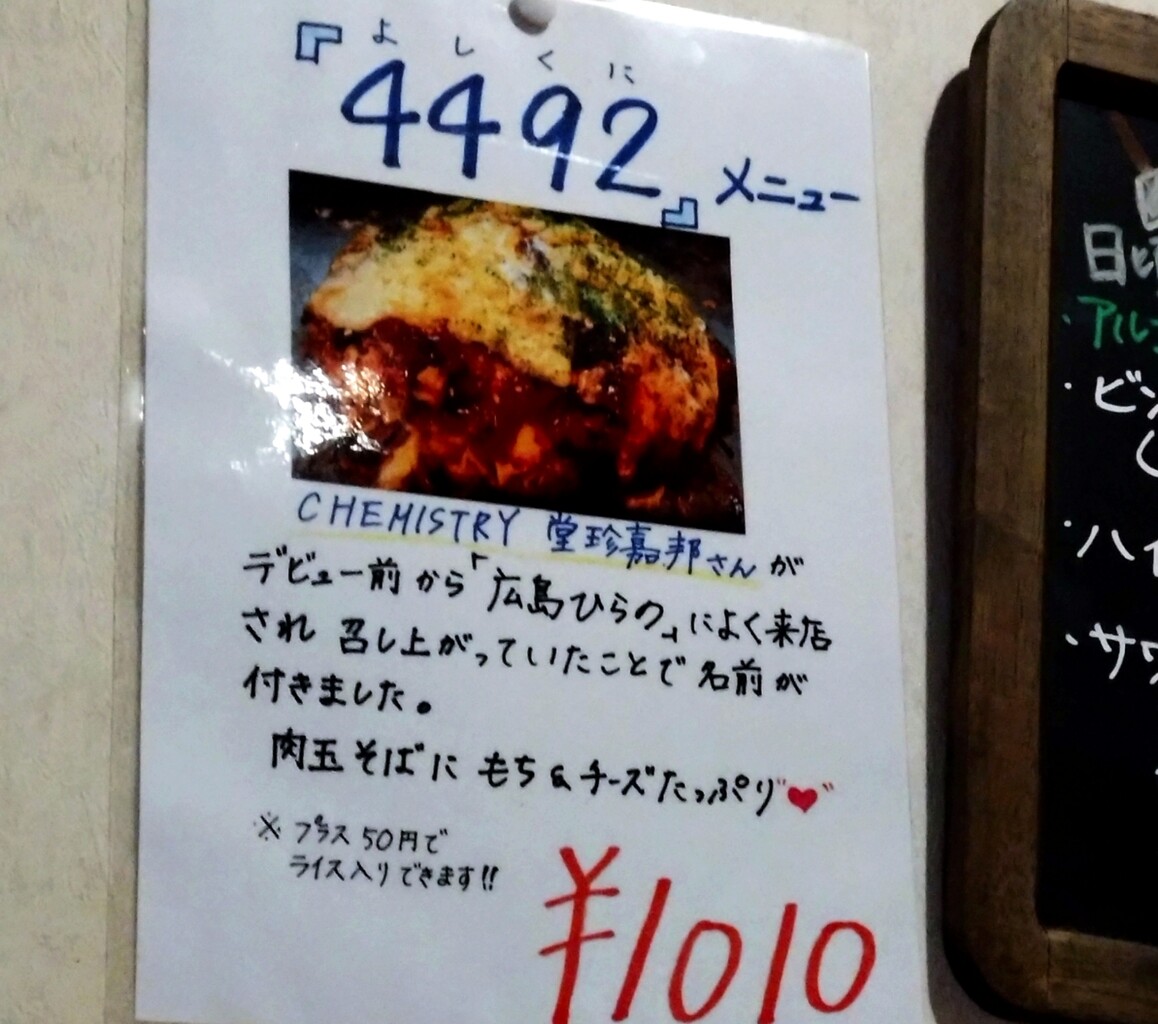 よしくに
『4492』メニュー
CHEMISTRY 堂珍嘉邦さんが
デビュー前から「広島ひらの」によく来店
され 召し上がっていたことで名前が
付きました。
肉玉そばに もち&チーズたっぷり♥
※プラス50円で
ライス入りできます!!
¥1010
・ハイ
・サワ